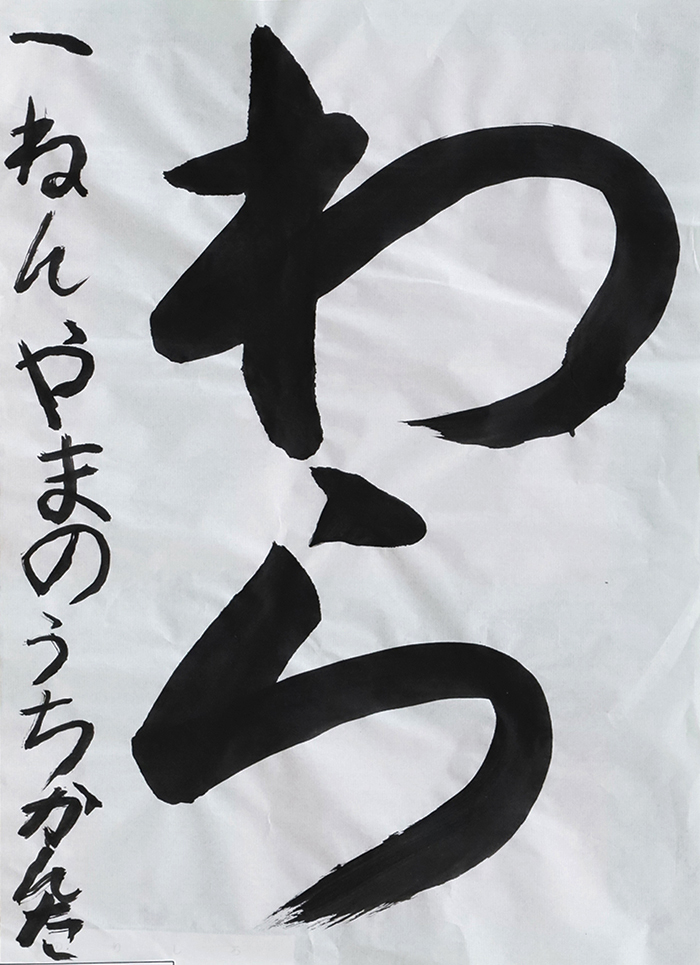 わら
一ねんやまのうちかんた